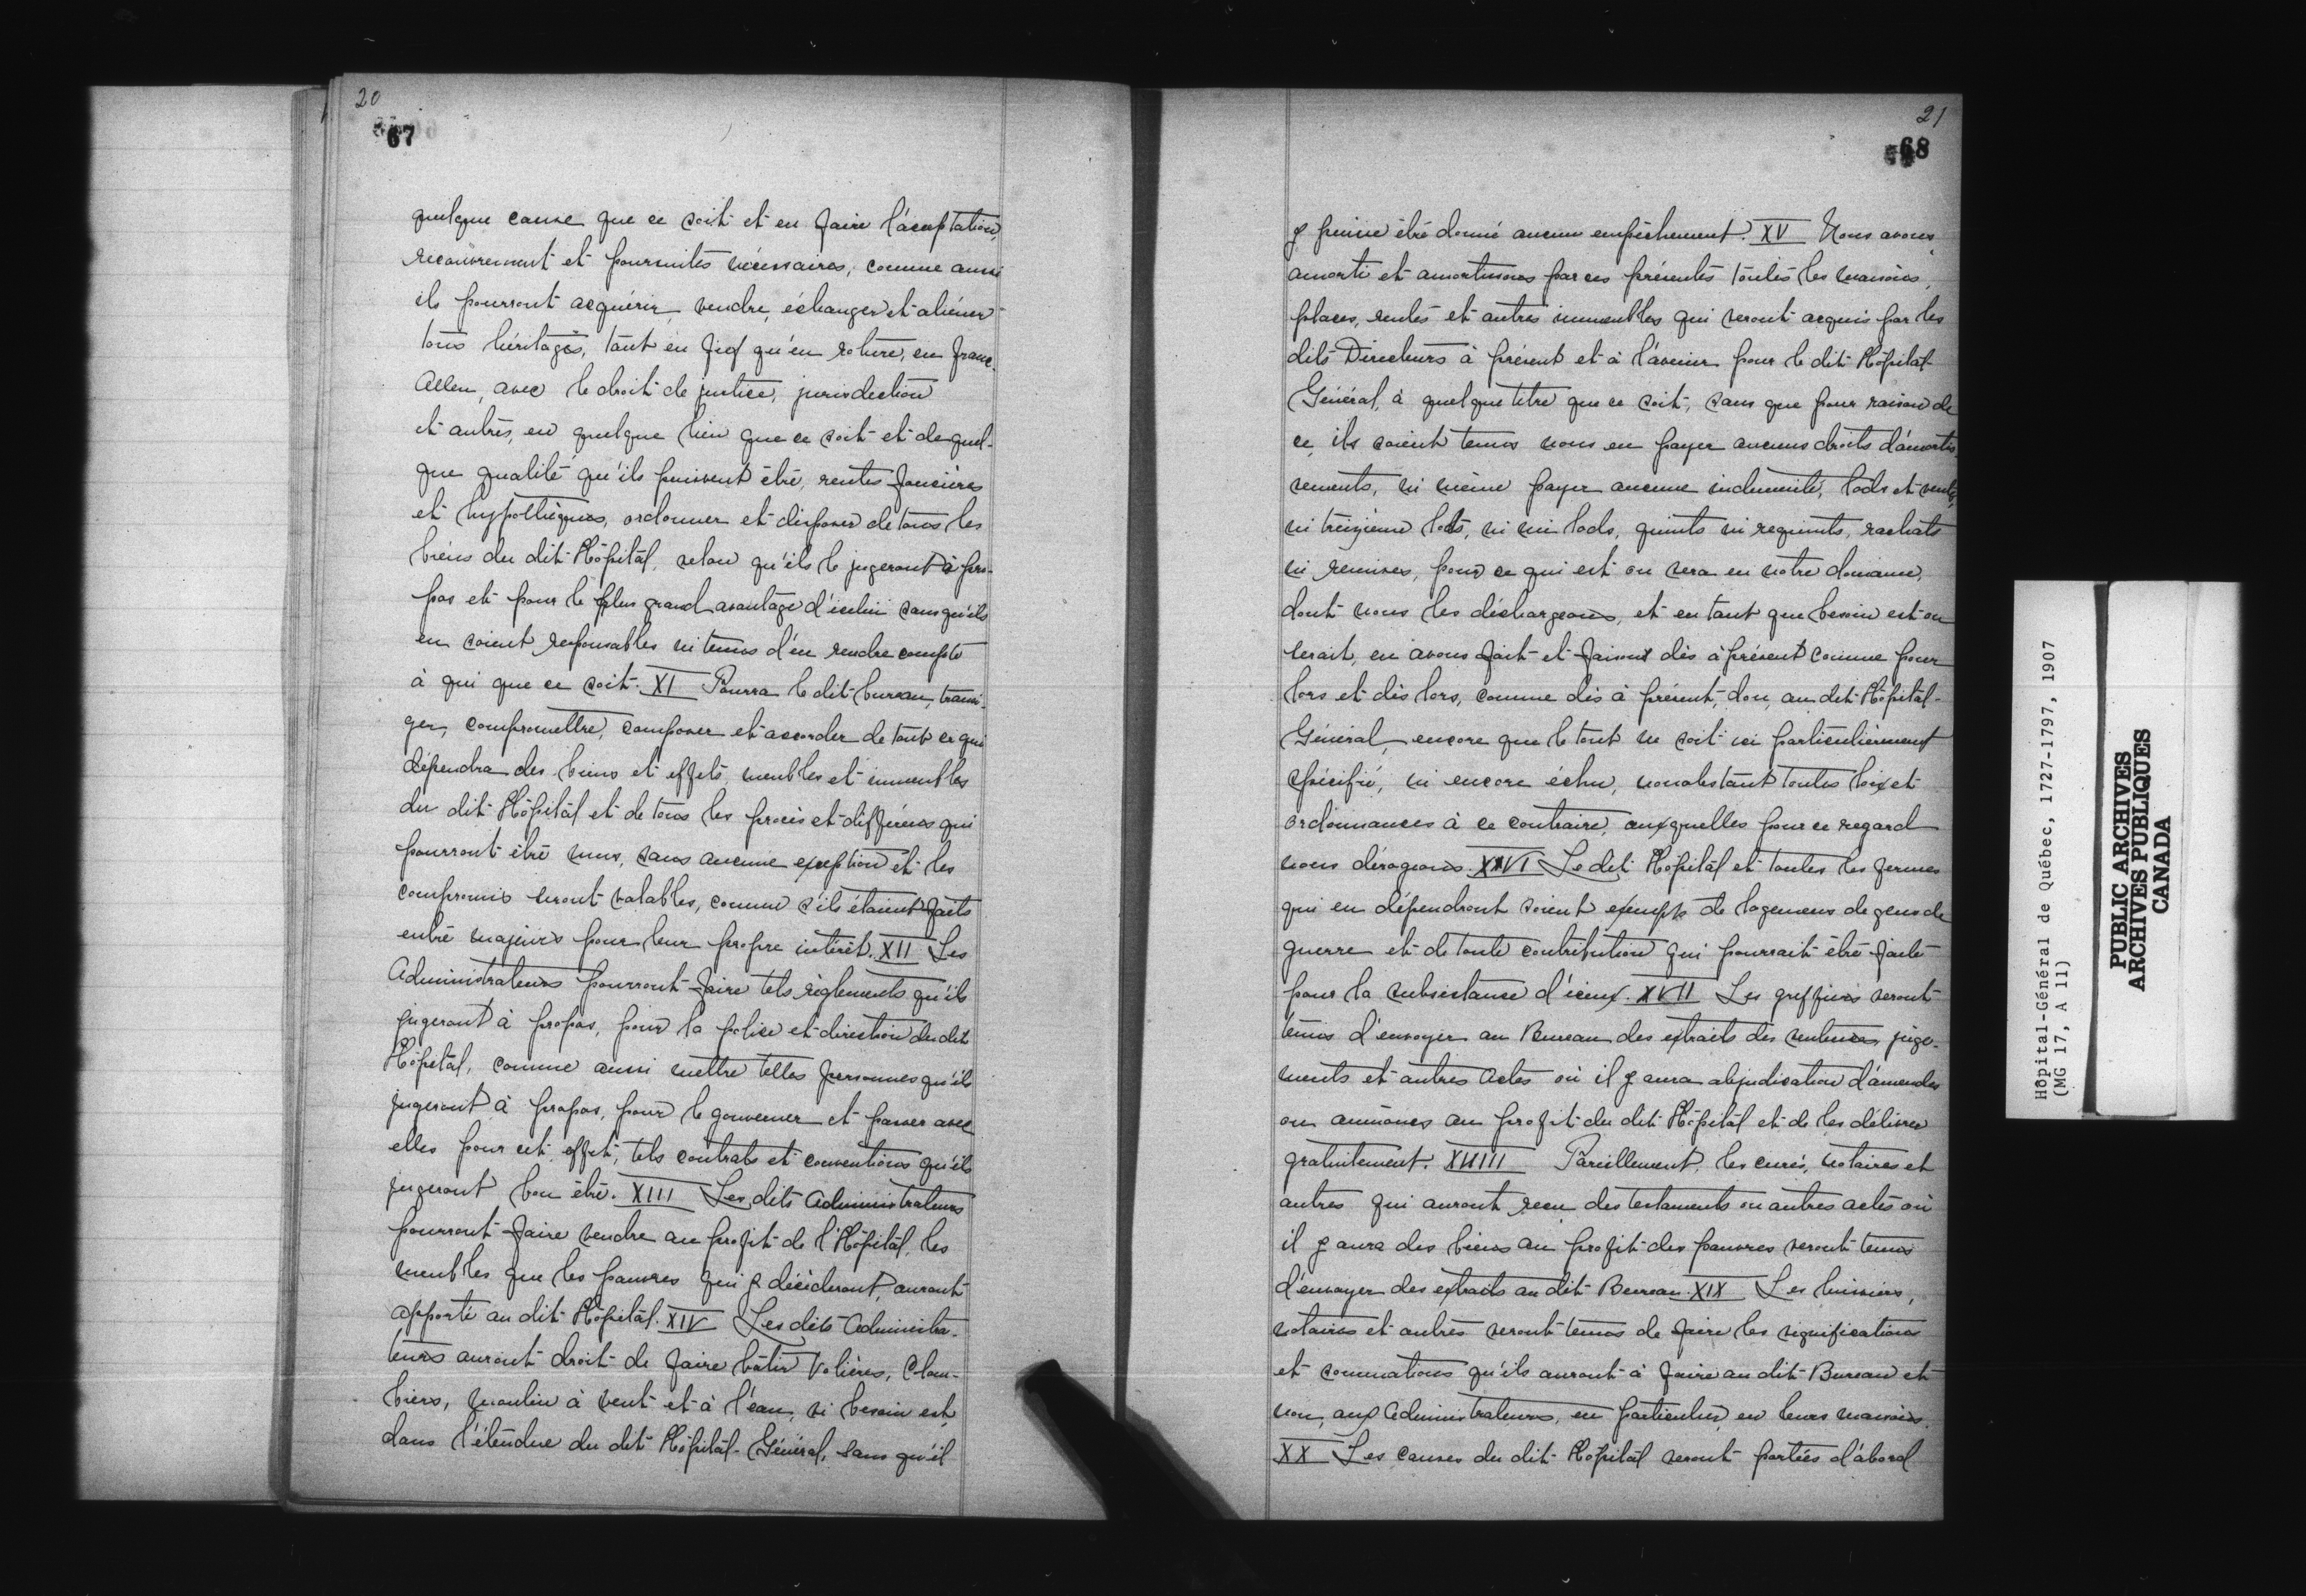 20
67
quelque cause que ce soit et en faire l'acceptation,
recouvrement et poursuites nécessaires, comme aussi
ils pourront acquérir, vendre, échanger et aliéner
tous héritages, tant en fief qu'en roture, en franc-
Alleu, avec le droit de justice, jurisdiction
et autres, en quelque lieu que ce soit et de quel-
que qualité qu'ils puissent être, rentes foncières
et hypothèques, ordonner et disposer de tous les
biens du dit Hôpital, selon qu'ils le jugeront à pro-
pos et pour le plus grand avantage d'icelui sans qu'ils
en soient responsables ni tenus d'en rendre compte
à qui que ce soit. XI Pourra le dit bureau, transi-
ger, compromettre, composer et accorder de tout ce qui
dépendra des biens et effets, meubles et immeubles
du dit Hôpital et de tous les procès et différens qui
pourront être mus, sans aucune exeption et les
compromis seront valables, comme s'ils étaient faits
entre majeurs pour leur propre intérêt. XII Les
Administrateurs pourront faire tels règlements qu'ils
jugeront à propos, pour la police et direction du dit
Hôpital, comme aussi mettre telles personnes qu'ils
jugeront à propos, pour le gouverner et passer avec
elles pour cet effet, tels contrats et conventions qu'ils
jugeront bon être. XIII Les dits Administrateurs
pourront faire vendre au profit de l'Hôpital, les
meubles que les pauvres qui y décèderont, auront
apporté au dit Hôpital. XIV Les dits Administra-
teurs auront droit de faire bâtir Volières, Colom-
biers, moulin à vent et à l'eau, si besoin est,
dans l'étendue du dit Hôpital-Général, sans qu'il
21
68
y puisse être donné aucun empêchement. XV Nous avons
amorti et amortissons par ces présentes toutes les maisons,
places, rentes et autres immeubles qui seront acquis par les
dits Directeurs à présent et à l'avenir pour le dit Hôpital-
Général, à quelque titre que ce soit, sans que pour raison de
ce, ils soient tenus nous en payer aucuns droits d'amortis-
sements, ni même payer aucune indemnité, lods et ventes,
ni treizième lods, ni mi lods, quints ni requints, rachats
ni remises, pour ce qui est ou sera en notre domaine,
dont nous les déchargeons, et en tant que besoin est ou
serait, en avons fait et faisons dès à présent comme pour
lors et dès lors, comme dès à présent, don, au dit Hôpital-
Général, encore que le tout ne soit ici particulièrement
spécifié, ni encore échu, nonobstant toutes loix et
ordonnances à ce contraire, auxquelles pour ce regard
nous dérogeons. XVI Le dit Hôpital et toutes les fermes
qui en dépendront soient exempts de logemens de gens de
guerre et de toute contribution qui pourrait être faite
pour la subsistance d'iceux. XVII Les greffiers seront
tenus d'envoyer au Bureau des extraits des sentences, juge-
ments et autres actes où il y aura adjudication d'amendes
ou aumônes au profit du dit Hôpital et de les délivrer
gratuitement. XVIII Pareillement, les curés, notaires et
autres qui auront reçu des testaments ou autres actes où
il y aura des biens au profit des pauvres seront tenus
d'envoyer des extraits au dit Bureau. XIX Les huissiers,
notaires et autres seront tenus de faire les significations
et sommations qu'ils auront à faire au dit Bureau et
non, aux Administrateurs, en particulier, en leurs maisons.
XX Les causes du dit Hôpital seront portées d'abord
Hôpital-Général de Québec, 1727-1797, 1907
(MG 17, A 11)
PUBLIC ARCHIVES
ARCHIVES PUBLIQUES
CANADA